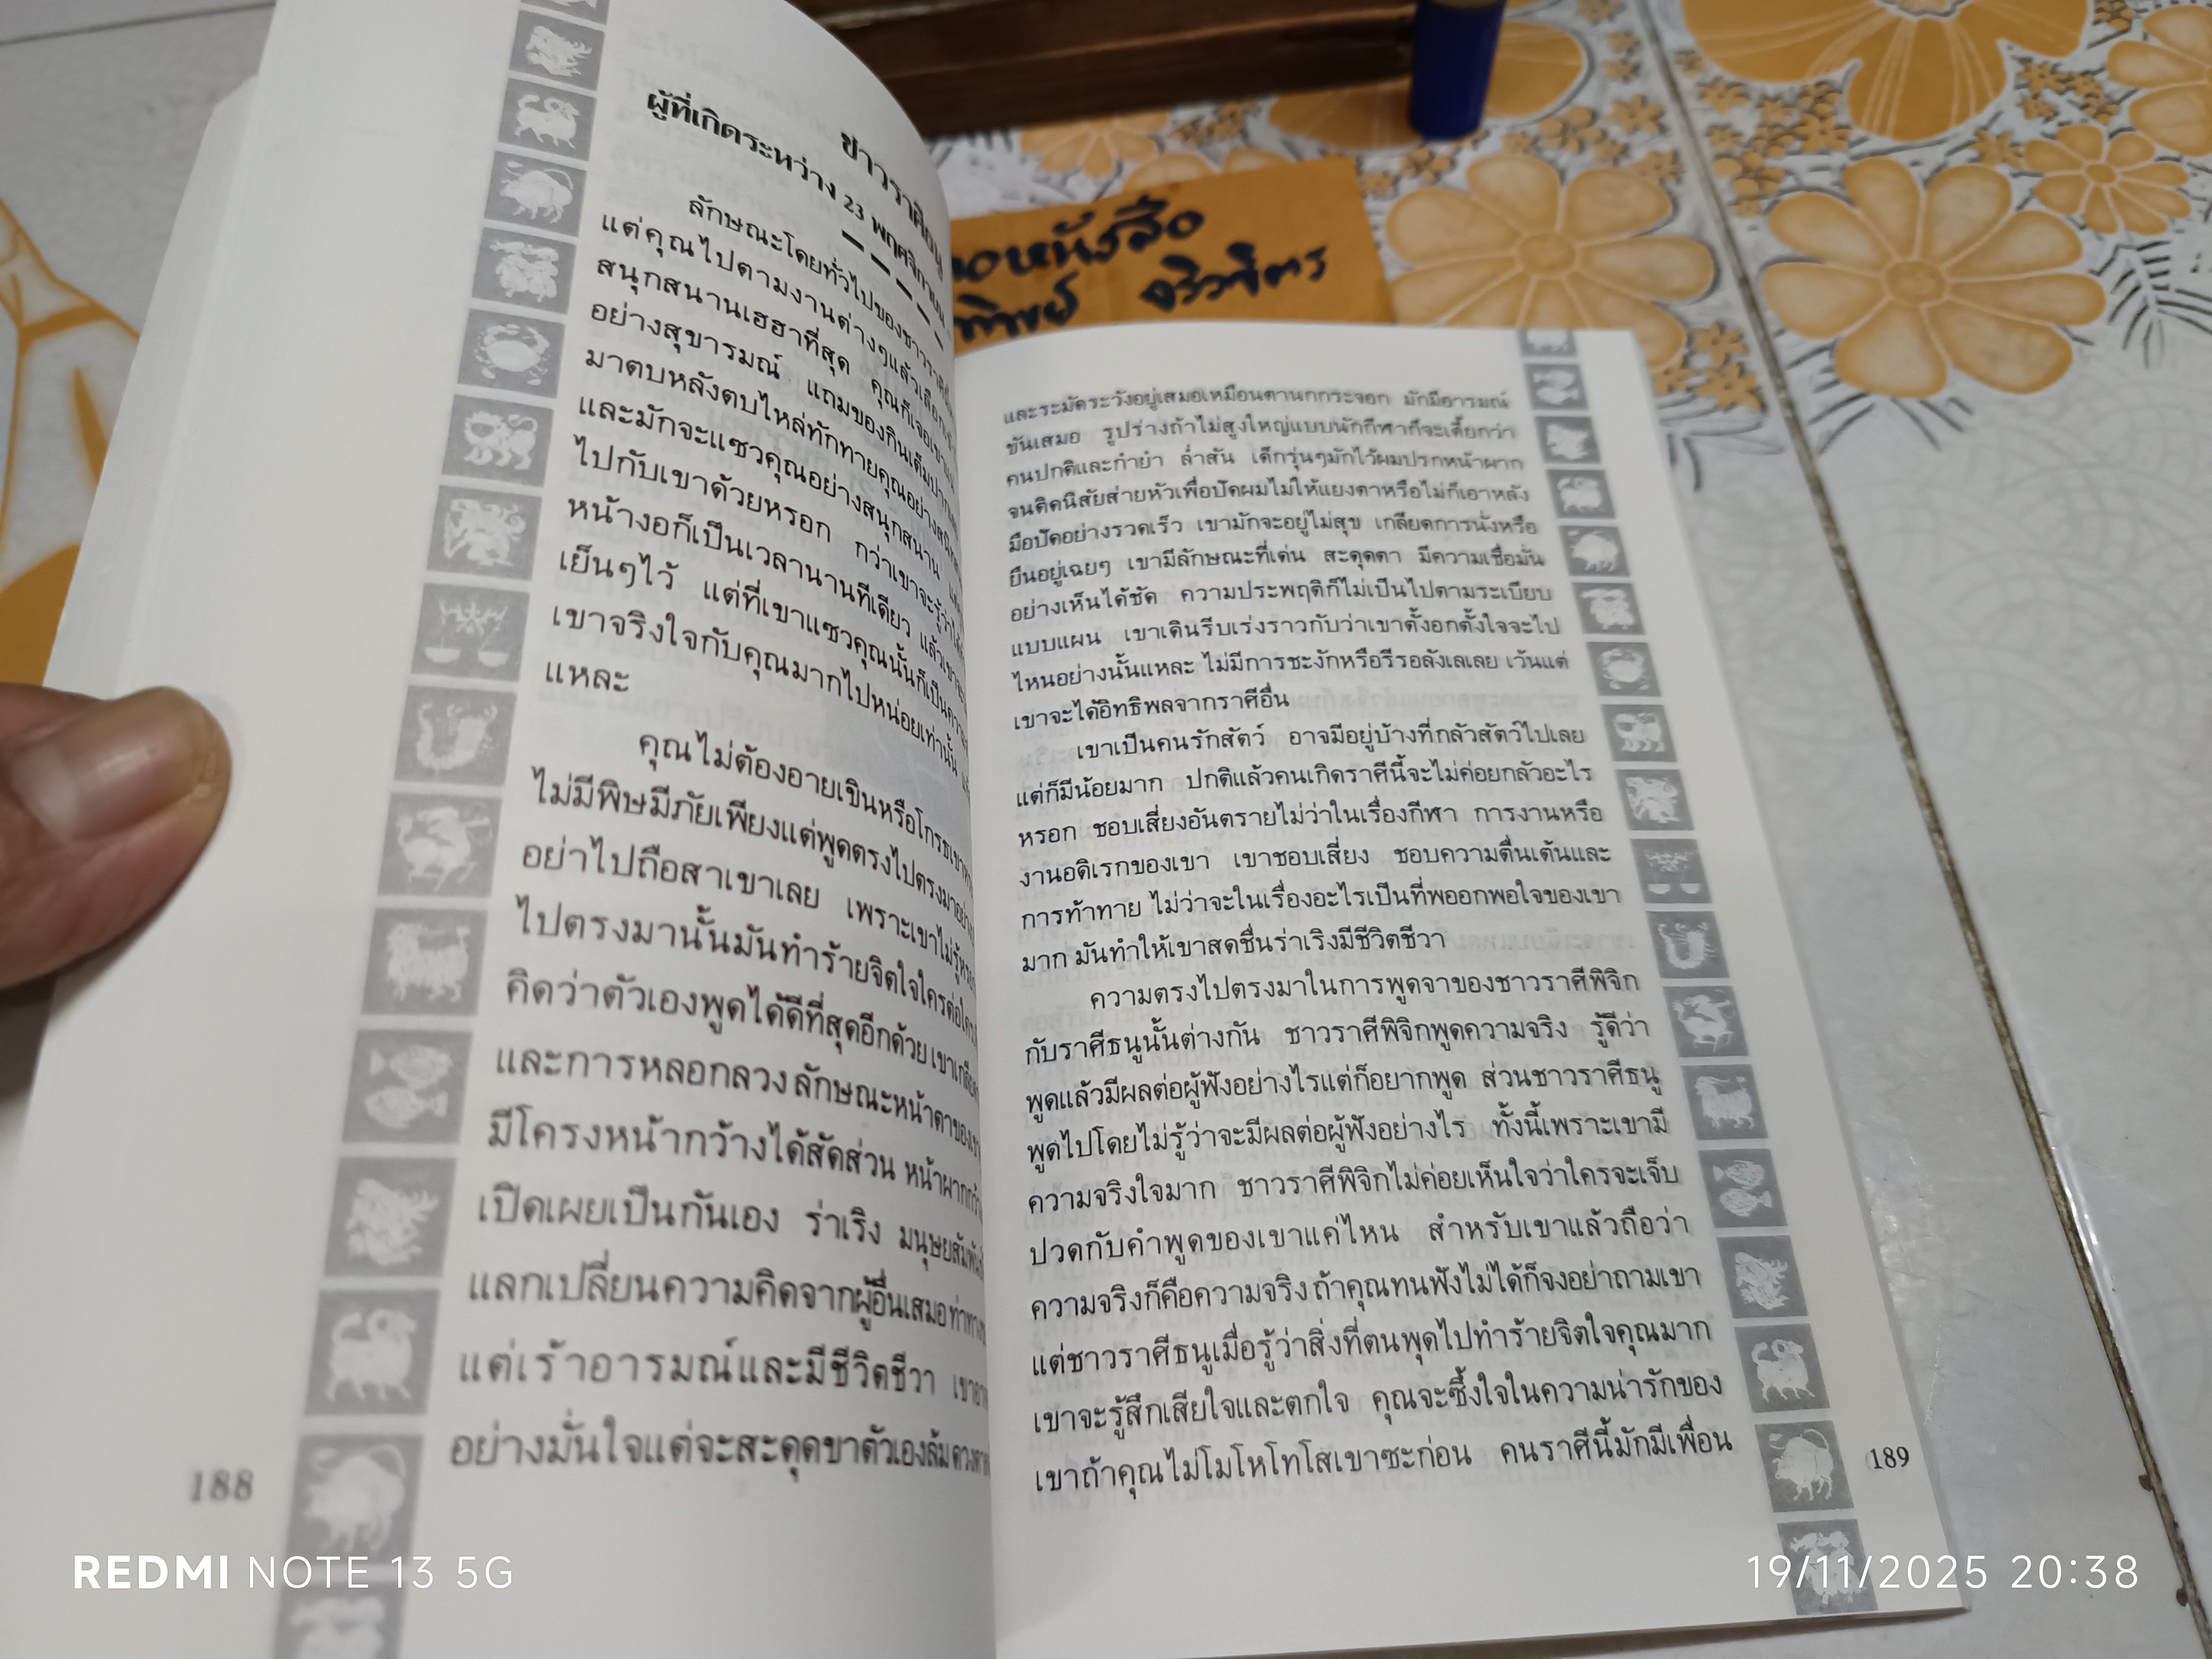 ชาวราศีธนู
ผู้ที่เกิดระหว่าง 23 พฤศจิกายน
ลักษณะโดยทั่วไปของชาวราศี
แต่คุณไปตามงานต่างๆแล้วเลือก
สนุกสนานเฮฮาที่สุด คุณก็เจอเขา
อย่างสุขารมณ์ แถมของกินเต็มปาก
มาตบหลังตบไหล่ทักทายคุณอย่างสนิท
และมักจะแซวคุณอย่างสนุกสนาน
ไปกับเขาด้วยหรอก กว่าเขาจะรู้ว่า
หน้างอก็เป็นเวลานานทีเดียว แล้วเขาจะ
เย็นๆไว้ แต่ที่เขาแซวคุณนั้นก็เป็น
เขาจริงใจกับคุณมากไปหน่อยเท่านั้น
แหละ
คุณไม่ต้องอายเขินหรือโกรธเขา
ไม่มีพิษมีภัยเพียงแต่พูดตรงไปตรงมาอย่าง
อย่าไปถือสาเขาเลย เพราะเขาไม่รู้หรอก
ไปตรงมานั้นมันทำร้ายจิตใจใครต่อใคร
คิดว่าตัวเองพูดได้ดีที่สุดอีกด้วย เขาเกลียด
และการหลอกลวง ลักษณะหน้าตาของเขา
มีโครงหน้ากว้างได้สัดส่วน หน้าผากกว้าง
เปิดเผยเป็นกันเอง ร่าเริง มนุษยสัมพันธ์
แลกเปลี่ยนความคิดจากผู้อื่นเสมอ ท่าทาง
แต่เร้าอารมณ์และมีชีวิตชีวา
อย่างมั่นใจแต่จะสะดุดขาตัวเองล้ม ดวงตา
188
และระมัดระวังอยู่เสมอเหมือนตานกกระจอก มักมีอารมณ์
ขันเสมอ รูปร่างถ้าไม่สูงใหญ่แบบนักกีฬาก็จะเตี้ยกว่า
คนปกติและกำยำ ล่ำสัน เด็กรุ่นๆมักไว้ผมปรกหน้าผาก
จนติดนิสัยส่ายหัวเพื่อปัดผมไม่ให้แยงตาหรือไม่ก็เอาหลัง
มือปัดอย่างรวดเร็ว เขามักจะอยู่ไม่สุข เกลียดการนั่งหรือ
ยืนอยู่เฉยๆ เขามีลักษณะที่เด่น สะดุดตา มีความเชื่อมั่น
อย่างเห็นได้ชัด ความประพฤติก็ไม่เป็นไปตามระเบียบ
แบบแผน เขาเดินรีบเร่งราวกับว่าเขาตั้งอกตั้งใจจะไป
ไหนอย่างนั้นแหละ ไม่มีการชะงักหรือรีรอลังเลเลย เว้นแต่
เขาจะได้อิทธิพลจากราศีอื่น
เขาเป็นคนรักสัตว์ อาจมีอยู่บ้างที่กลัวสัตว์ไปเลย
แต่ก็มีน้อยมาก ปกติแล้วคนเกิดราศีนี้จะไม่ค่อยกลัวอะไร
หรอก ชอบเสี่ยงอันตรายไม่ว่าในเรื่องกีฬา การงานหรือ
งานอดิเรกของเขา เขาชอบเสี่ยง ชอบความตื่นเต้นและ
การท้าทาย ไม่ว่าจะในเรื่องอะไรเป็นที่พออกพอใจของเขา
มาก มันทำให้เขาสดชื่นร่าเริงมีชีวิตชีวา
ความตรงไปตรงมาในการพูดจาของชาวราศีพิจิก
กับราศีธนูนั้นต่างกัน ชาวราศีพิจิกพูดความจริง รู้ดีว่า
พูดแล้วมีผลต่อผู้ฟังอย่างไรแต่ก็อยากพูด ส่วนชาวราศีธนู
พูดไปโดยไม่รู้ว่าจะมีผลต่อผู้ฟังอย่างไร ทั้งนี้เพราะเขามี
ความจริงใจมาก ชาวราศีพิจิกไม่ค่อยเห็นใจว่าใครจะเจ็บ
ปวดกับคำพูดของเขาแค่ไหน สำหรับเขาแล้วถือว่า
ความจริงก็คือความจริง ถ้าคุณทนฟังไม่ได้ก็จงอย่าถามเขา
แต่ชาวราศีธนูเมื่อรู้ว่าสิ่งที่ตนพูดไปทำร้ายจิตใจคุณมาก
เขาจะรู้สึกเสียใจและตกใจ คุณจะซึ้งใจในความน่ารักของ
เขาถ้าคุณไม่โมโหโทโสเขาซะก่อน คนราศีนี้มักมีเพื่อน
189
หนังสือ
จริวจิตร
REDMI NOTE 13 5G
19/11/2025 20:38